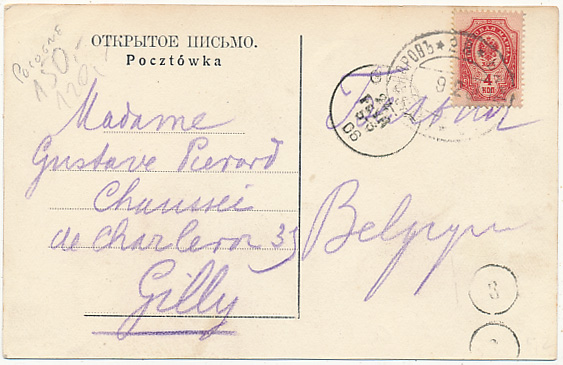 ОТКРЫТОЕ ПИСЬМО.
Pocztówka
POLOGNE
150,-
120,-
Madame
Gustave Pierard
Chaussée
de Charleroi 35
Gilly
Belgique
4
КОП
8